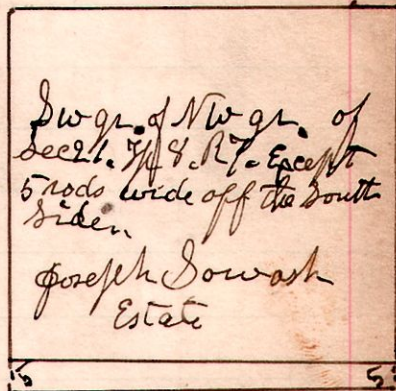 Sw qr. of Nw qr. of
Sec 21. Tp 8. R 7. Except
5 rods wide off the South
Side.
Joseph Sowash
Estate
5